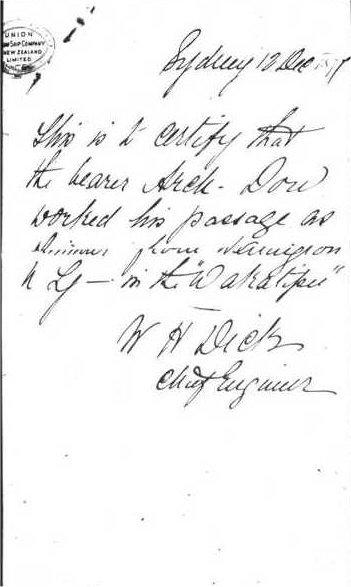 UNION
SHIP COMPANY
NEW ZEALAND
LIMITED
Sydney 12 Dec
This is to certify that
the bearer Arch. Dow
worked his passage as
from
in the "Wakatipu"
W H Dick
Chief Engineer